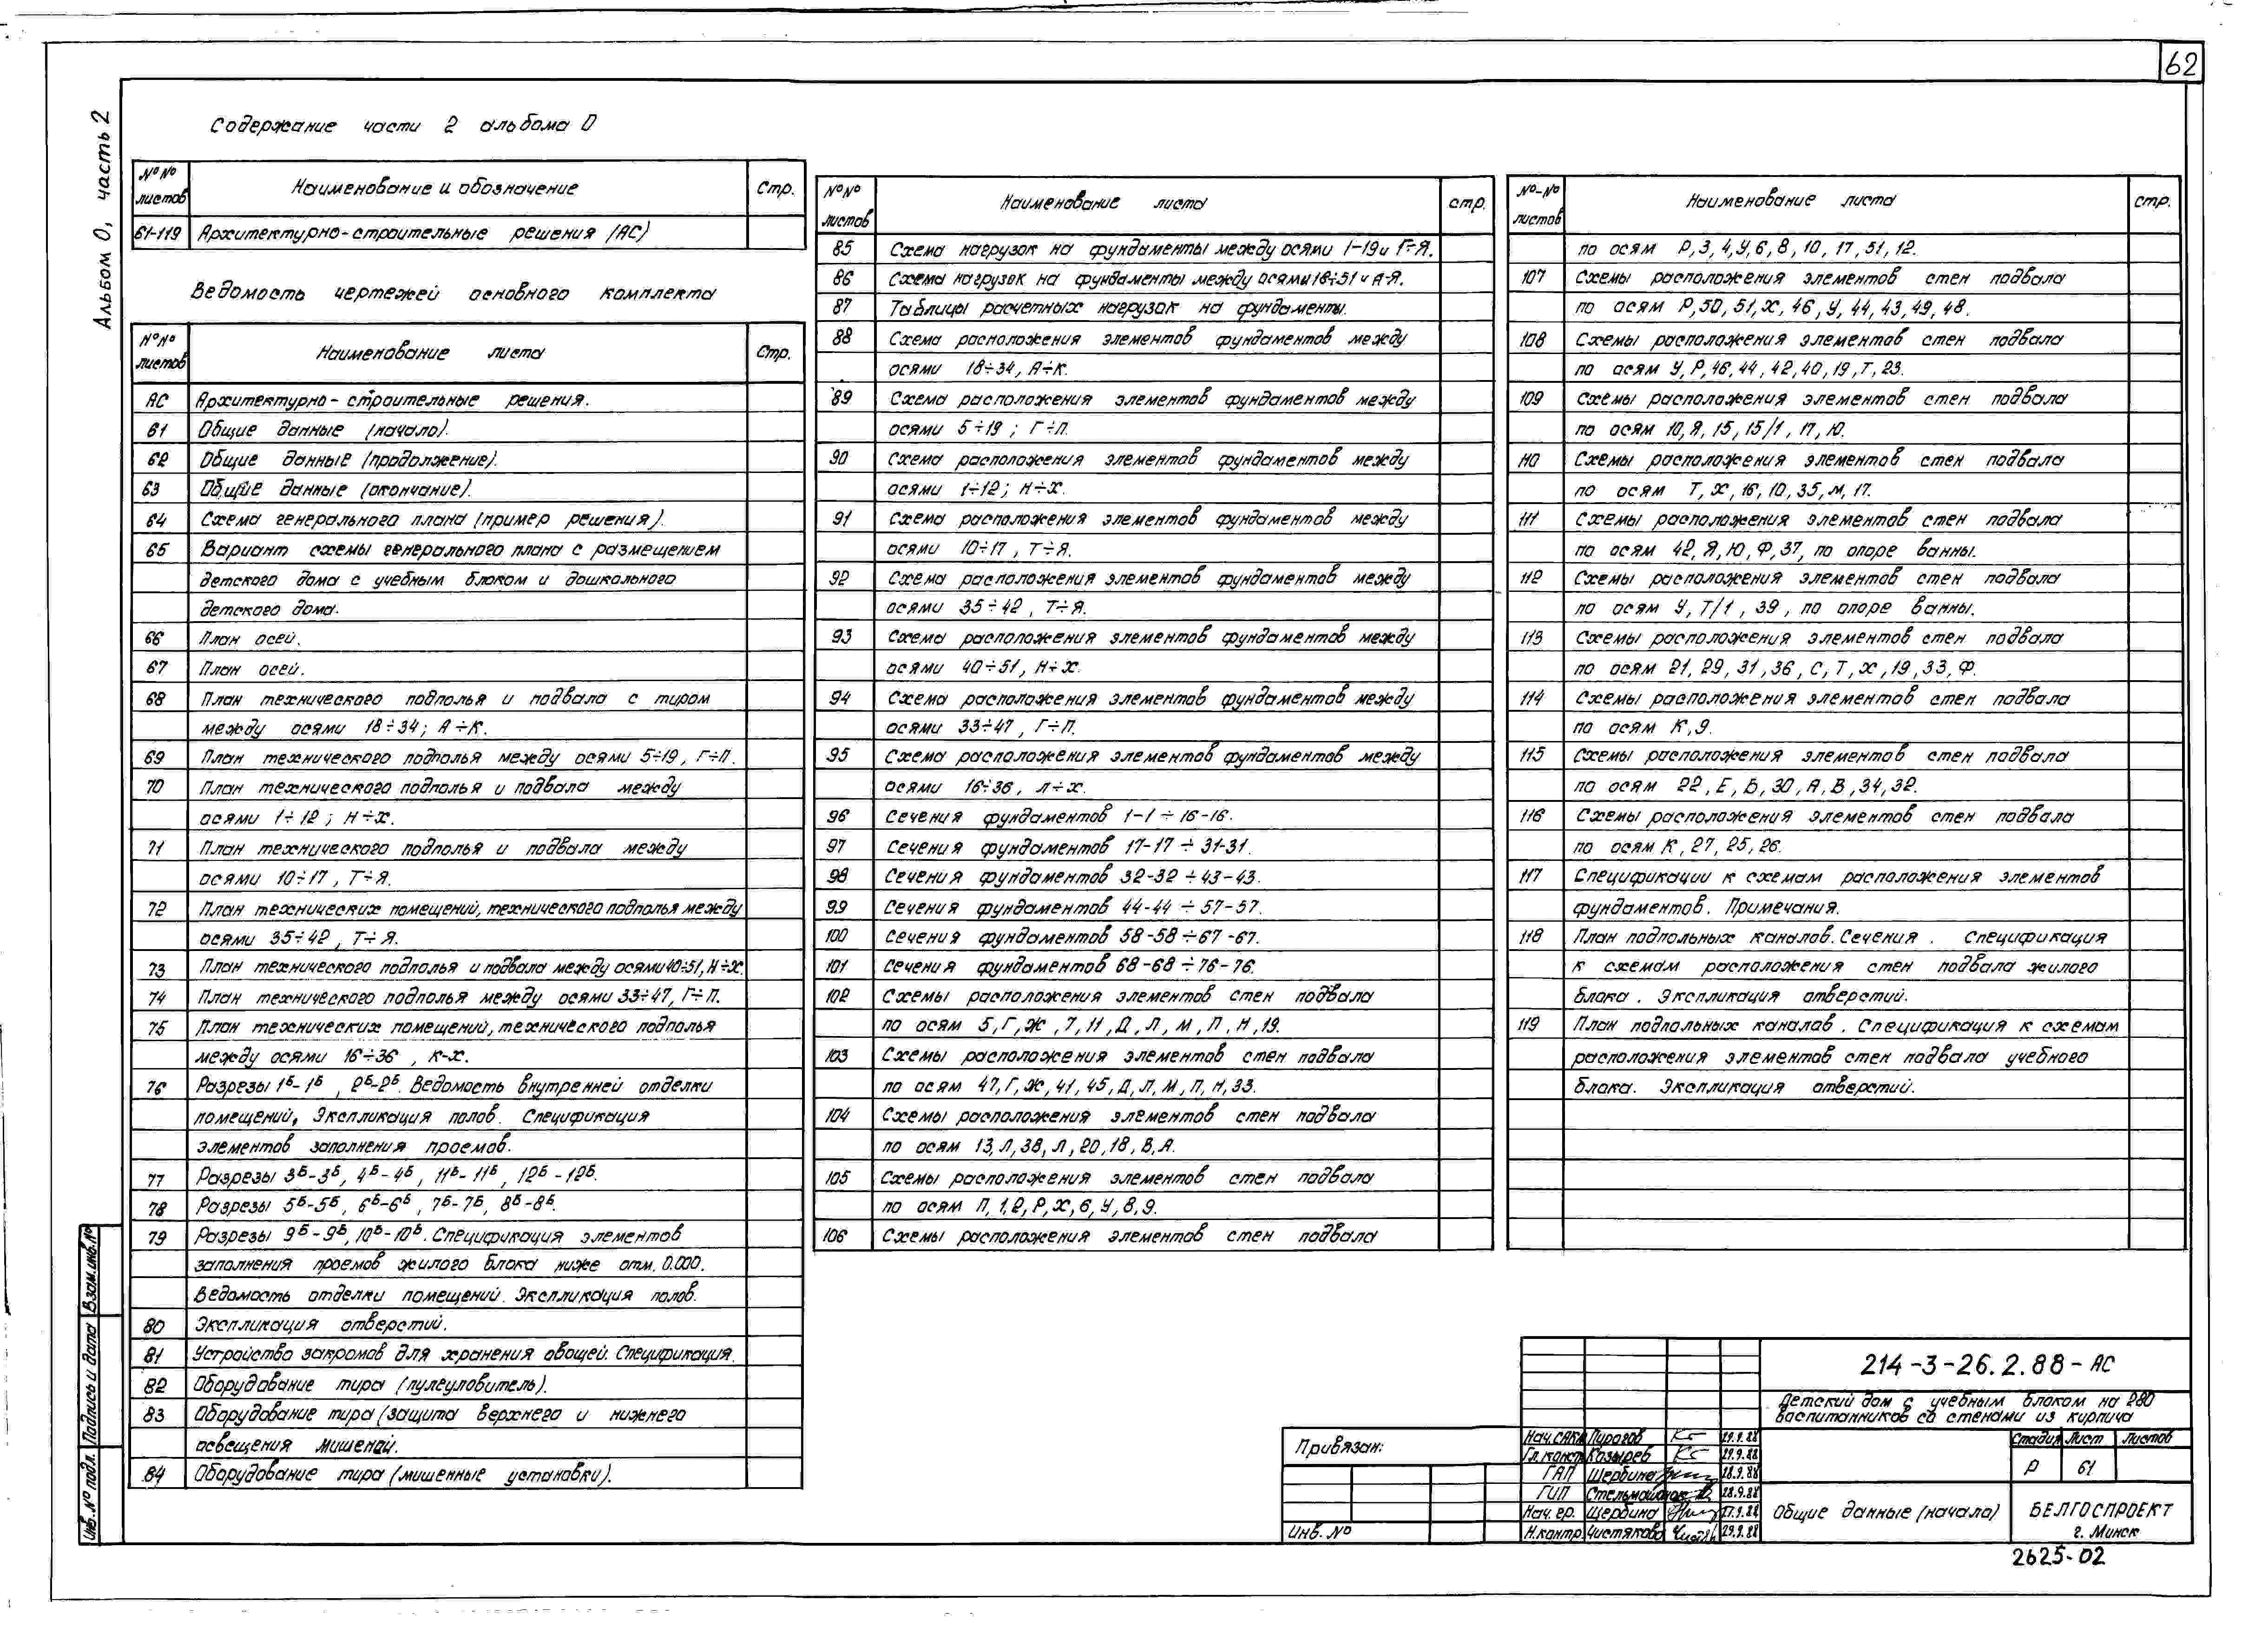 62
Альбом 0, часть 2
Содержание части 2 альбома 0
№№ листов
Наименование и обозначение
Стр.
61-119 Архитектурно-строительные решения (АС)
Ведомость чертежей основного комплекта
№№ листов
Наименование листа
Стр.
АС Архитектурно-строительные решения.
61 Общие данные (начало).
62 Общие данные (продолжение).
63 Общие данные (окончание).
64 Схема генерального плана (пример решения).
65 Вариант схемы генерального плана с размещением
детского дома с учебным блоком и дошкольного
детского дома.
66 План осей.
67 План осей.
68 План технического подполья и подвала с тиром
между осями 18÷34; А÷К.
69 План технического подполья между осями 5÷19, Г÷П.
70 План технического подполья и подвала между
осями 1÷12; Н÷Х.
71 План технического подполья и подвала между
осями 10÷17, Т÷Я.
72 План технических помещений, технического подполья между
осями 35÷42, Т÷Я.
73 План технического подполья и подвала между осями 40÷51, Н÷Х.
74 План технического подполья между осями 33÷47, Г÷П.
75 План технических помещений, технического подполья
между осями 16÷36, К-Х.
76 Разрезы 1Б-1Б, 2Б-2Б. Ведомость внутренней отделки
помещений, Экспликация полов. Спецификация
элементов заполнения проемов.
77 Разрезы 3Б-3Б, 4Б-4Б, 11Б-11Б, 12Б-12Б.
78 Разрезы 5Б-5Б, 6Б-6Б, 7Б-7Б, 8Б-8Б.
79 Разрезы 9Б-9Б, 10Б-10Б. Спецификация элементов
заполнения проемов жилого блока ниже отм. 0.000.
Ведомость отделки помещений. Экспликация полов.
80 Экспликация отверстий.
81 Устройство закромов для хранения овощей. Спецификация.
82 Оборудование тира (пулеуловитель).
83 Оборудование тира (защита верхнего и нижнего
освещения мишеней.
84 Оборудование тира (мишенные установки).
№№ листов
Наименование листа
стр.
85 Схема нагрузок на фундаменты между осями 1-19 и Г÷Я.
86 Схема нагрузок на фундаменты между осями 16÷51 и А-Я.
87 Таблицы расчетных нагрузок на фундаменты.
88 Схема расположения элементов фундаментов между
осями 18÷34, А÷К.
89 Схема расположения элементов фундаментов между
осями 5÷19; Г÷П.
90 Схема расположения элементов фундаментов между
осями 1÷12; Н÷Х.
91 Схема расположения элементов фундаментов между
осями 10÷17, Т÷Я.
92 Схема расположения элементов фундаментов между
осями 35÷42, Т÷Я.
93 Схема расположения элементов фундаментов между
осями 40÷51, Н÷Х.
94 Схема расположения элементов фундаментов между
осями 33÷47, Г÷П.
95 Схема расположения элементов фундаментов между
осями 16÷36, Л÷Х.
96 Сечения фундаментов 1-1÷16-16.
97 Сечения фундаментов 17-17÷31-31.
98 Сечения фундаментов 32-32÷43-43.
99 Сечения фундаментов 44-44÷57-57.
100 Сечения фундаментов 58-58÷67-67.
101 Сечения фундаментов 68-68÷76-76.
102 Схемы расположения элементов стен подвала
по осям 5, Г, Ж, 7, 11, Д, Л, М, П, Н, 19.
103 Схемы расположения элементов стен подвала
по осям 47, Г, Ж, 41, 45, Д, Л, М, П, Н, 33.
104 Схемы расположения элементов стен подвала
по осям 13, Л, 38, Л, 20, 18, В, А.
105 Схемы расположения элементов стен подвала
по осям П, 1, 2, Р, Х, 6, У, 8, 9.
106 Схемы расположения элементов стен подвала
№-№ листов
Наименование листа
стр.
по осям Р, 3, 4, У, 6, 8, 10, 17, 51, 12.
107 Схемы расположения элементов стен подвала
по осям Р, 50, 51, Х, 46, У, 44, 43, 49, 48.
108 Схемы расположения элементов стен подвала
по осям У, Р, 46, 44, 42, 40, 19, Т, 23.
109 Схемы расположения элементов стен подвала
по осям 10, Я, 15, 15/1, П, Ю.
110 Схемы расположения элементов стен подвала
по осям Т, Х, 16, 10, 35, М, 17.
111 Схемы расположения элементов стен подвала
по осям 42, Я, Ю, Ф, 37, по опоре ванны.
112 Схемы расположения элементов стен подвала
по осям У, Т/1, 39, по опоре ванны.
113 Схемы расположения элементов стен подвала
по осям 21, 29, 31, 36, С, Т, Х, 19, 33, Ф.
114 Схемы расположения элементов стен подвала
по осям К, 9.
115 Схемы расположения элементов стен подвала
по осям 22, Е, Б, 30, А, В, 34, 32.
116 Схемы расположения элементов стен подвала
по осям К, 27, 25, 26.
117 Спецификации к схемам расположения элементов
фундаментов. Примечания.
118 План подпольных каналов. Сечения. Спецификация
к схемам расположения стен подвала жилого
блока. Экспликация отверстий.
119 План подпольных каналов. Спецификация к схемам
расположения элементов стен подвала учебного
блока. Экспликация отверстий.
Инв. № подл. Подпись и дата Взам.инв.№
Привязан:
Инв. №
214-3-26.2.88-АС
Детский дом с учебным блоком на 280
воспитанников со стенами из кирпича
Нач.САКМ Пирогов 29.9.88
Гл.констр Козырев 29.9.88
ГАП Щербина 28.9.88
ГИП 28.9.88
Нач. гр. Щербина 27.9.88
Н.контр Чистякова 29.9.88
Стадия Лист Листов
Р 61
Общие данные (начало)
БЕЛГОСПРОЕКТ
г. Минск
2625-02